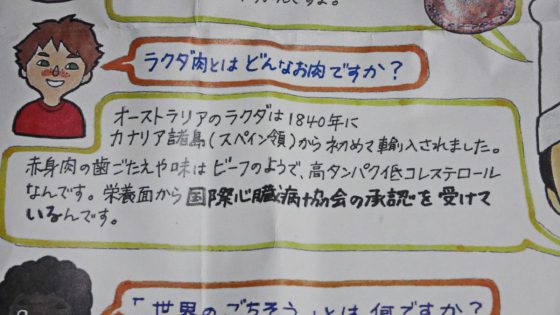 ラクダ肉とは どんなお肉ですか?
オーストラリアのラクダは1840年に
カナリア諸島(スペイン領)から初めて輸入されました。
赤身肉の歯ごたえや味は ビーフのようで、高タンパク低コレステロール
なんです。栄養面から国際心臓病協会の承認を受けて
いるんです。
「世界のごちそう」とは 何ですか?